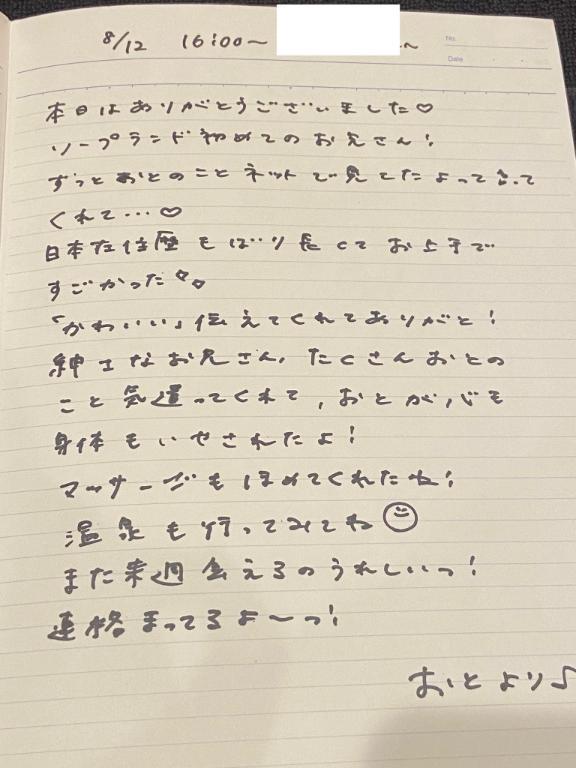 8/12 16:00～
No.
Date
本日はありがとうございました♡
ソープランド初めてのお兄さん!
ずっとおとのことネットで見てたよって言って
くれて…♡
日本在住歴もばり長くてお上手で
すごかった
「かわいい」伝えてくれてありがと!
紳士なお兄さん、たくさんおとの
こと気遣ってくれて,おとが心も
身体もいやされたよ!
マッサージもほめてくれたね!
温泉も行ってみてね☺
また来週会えるのうれしいっ!
連絡まってるよ～っ!
おとより♪